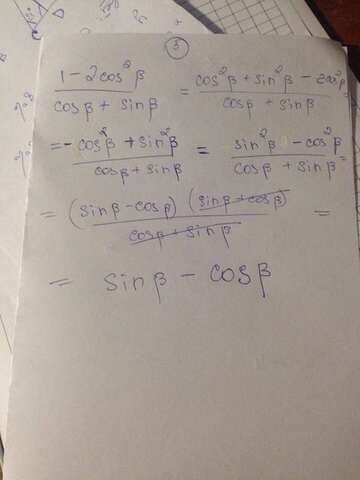 3
1 - 2cos²β / cosβ + sinβ = cos²β + sin²β - 2cos²β / cosβ + sinβ
= -cos²β + sin²β / cosβ + sinβ = sin²β - cos²β / cosβ + sinβ =
= (sinβ - cosβ) (sinβ + cosβ) / cosβ + sinβ =
= sinβ - cosβ